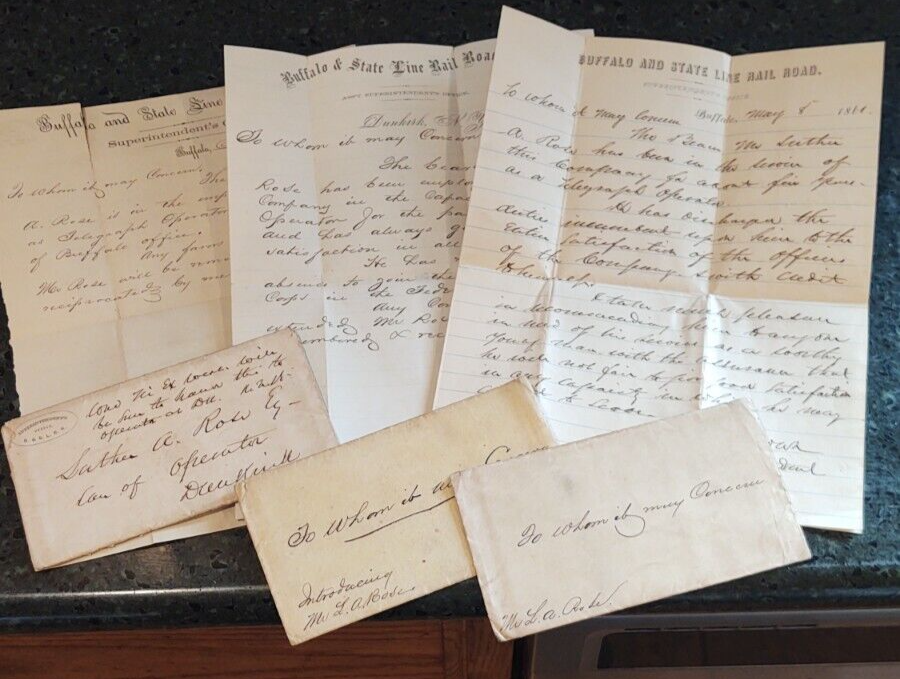 Buffalo and State Line
Superintendent's
Buffalo,
To Whom it may Concern
The
A. Rose is in the
as Telegraph Operator
of Buffalo office.
Any favor
Mr Rose will be
reciprocated by me
Buffalo & State Line Rail Road
ASST SUPERINTENDENT'S OFFICE.
Dunkirk, N.Y.
To whom it may Concern
The
Rose has been employed
Company in the
Operator for the
and has always
satisfaction in all
He has
absence to join the
Corps in the
Any
extended Mr Rose
BUFFALO AND STATE LINE RAIL ROAD.
SUPERINTENDENT'S OFFICE
Buffalo, May 8 186
To whom it may Concern
The Bearer Mr Luther
A Rose has been in the service of
this Company for about five years
as a Telegraph Operator
He has discharged the
duties incumbent upon him to the
entire satisfaction of the officers
of the Company & with credit
to himself
I take much pleasure
in recommending him to any one
in need of his services as a worthy
young man with the assurance that
he will not fail to give good satisfaction
in any capacity in which he may
SUPERINTENDENT'S
OFFICE
be sure to hand this to
operator at
Luther A. Rose Esq
Care of Operator
Dunkirk
To Whom it may Concern
Introducing
Mr L. A. Rose
To Whom it may Concern
Mr L. A. Rose.